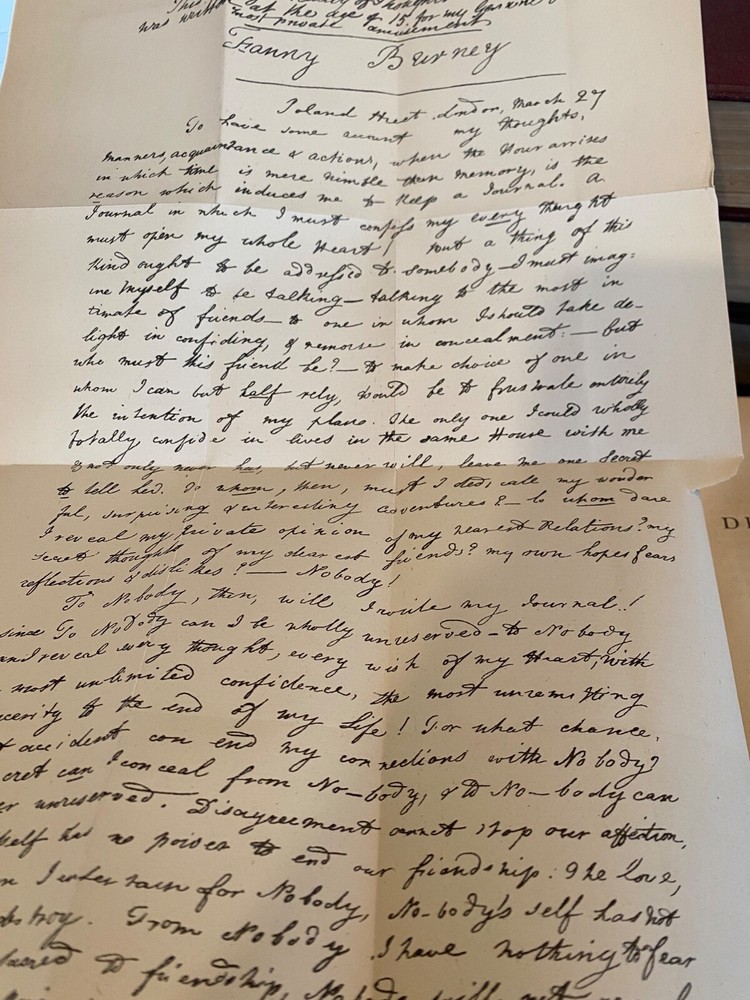 This
was written at the age of 15. for my Genuine &
most private amusement
Fanny Burney
Poland Street London, March 27
To have some account my thoughts,
manners, acquaintance & actions, when the Hour arrives
in which time is more nimble than memory, is the
reason which induces me to keep a Journal. A
Journal in which I must confess my every thought
must open my whole Heart! But a thing of this
kind ought to be addressed to somebody—I must imag=
ine myself to be talking—talking to the most in
timate of friends—to one in whom I should take de-
light in confiding, & remorse in concealment:—but
who must this friend be?—to make choice of one in
whom I can but half rely, would be to frustrate entirely
the intention of my plan. The only one I could wholly
totally confide in lives in the same House with me
& not only never has, but never will, leave me one Secret
to tell her. To whom, then, must I dedicate my wonder
ful, surprising & interesting adventures?—to whom dare
I reveal my private opinion of my nearest Relations? my
secret thoughts of my dearest friends? my own hopes fears
reflections & dislikes?—Nobody!
To Nobody, then, will I write my Journal!
since To Nobody can I be wholly unreserved—to Nobody
can I reveal every thought, every wish of my Heart, with
most unlimited confidence, the most unremitting
cerity to the end of my Life! For what chance,
t accident can end my connections with Nobody?
cret can I conceal from No—body, & to No—body can
er unreserved. Disagreement cannot stop our affection,
self has no power to end our friendship. The love,
n I entertain for Nobody, No-body's self has not
destroy. From Nobody I have nothing to fear
sacred to friendship, Nobody will not
DI